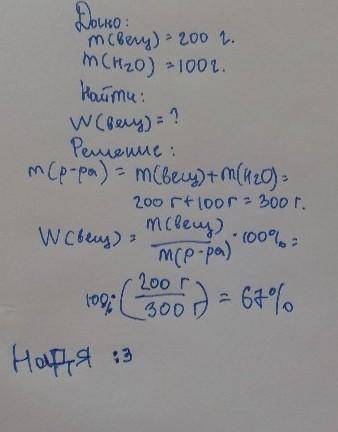 Дано:
m(вещ) = 200 г.
m(H₂O) = 100г.
Найти:
W(вещ) = ?
Решение:
m(р-ра) = m(вещ)+m(H₂O) =
200 г + 100г = 300 г.
W(вещ) = m(вещ) / m(р-ра) · 100% =
100% · (200 г / 300 г) = 67%
НАДЯ :3